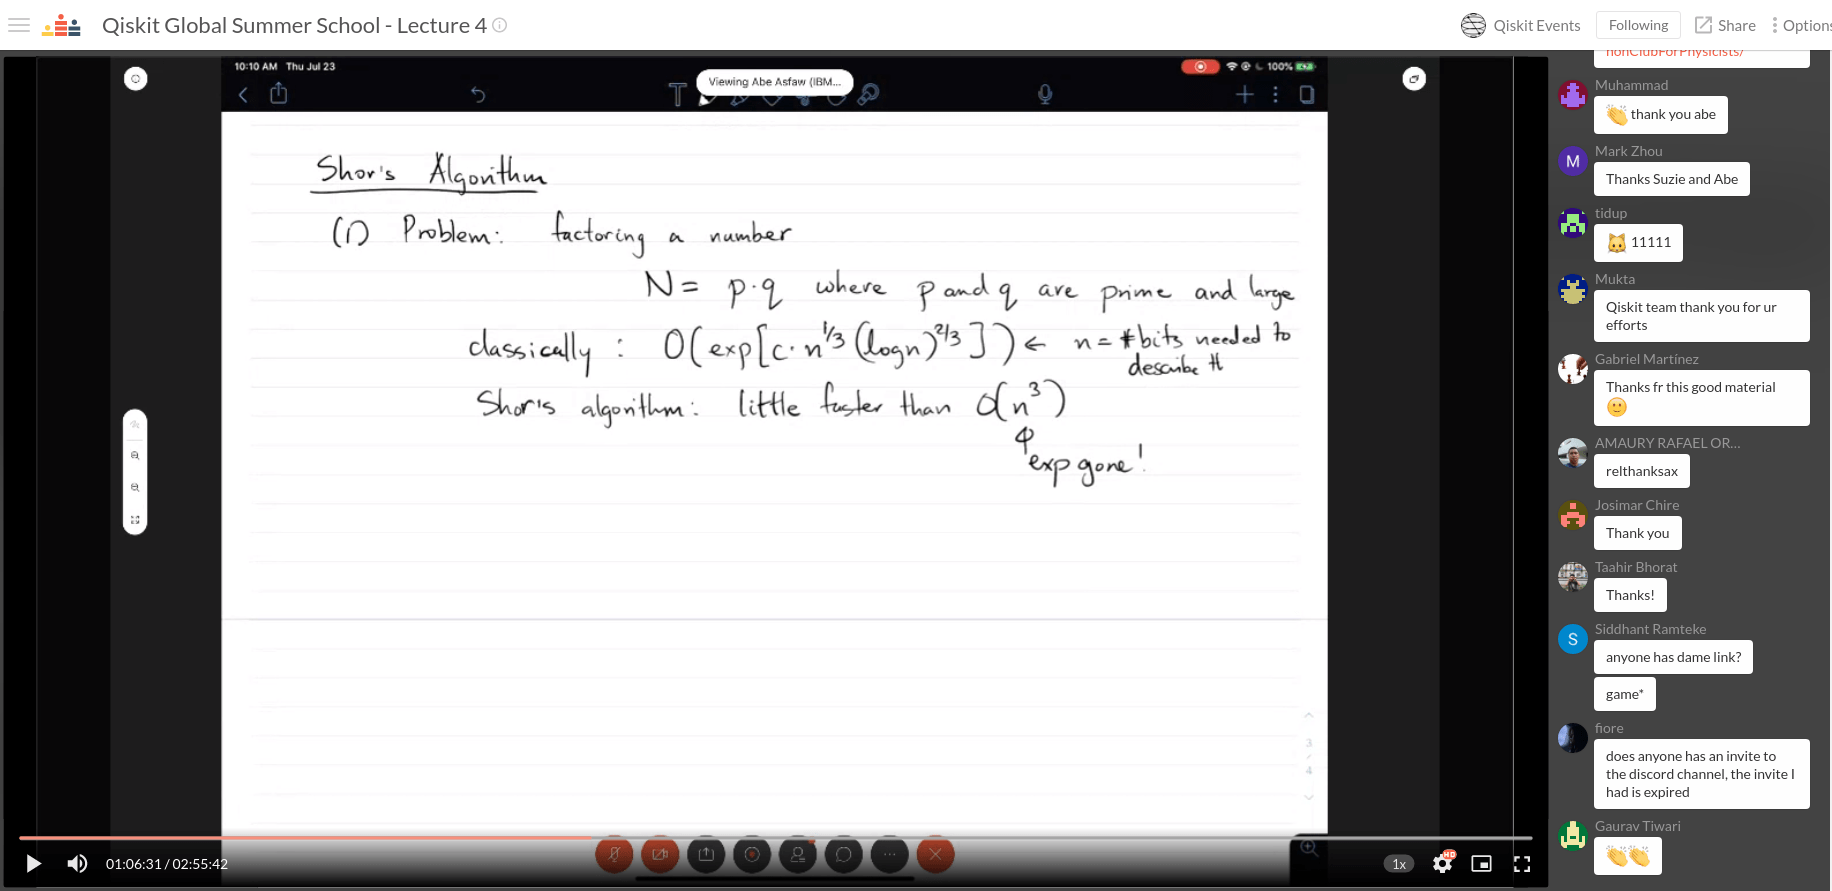 Qiskit Global Summer School - Lecture 4
Qiskit Events
Following
Share
Options
10:10 AM Thu Jul 23
100%
Viewing Abe Asfaw (IBM...
Shor's Algorithm
(1) Problem: factoring a number
N = p·q where p and q are prime and large
classically: O(exp[c·n^1/3 (logn)^2/3]) ← n = #bits needed to
describe #
Shor's algorithm: little faster than O(n^3)
exp gone!
3
4
01:06:31 / 02:55:42
1x
HD
nonClubForPhysicists/
Muhammad
👏 thank you abe
M
Mark Zhou
Thanks Suzie and Abe
tidup
🐱 11111
Mukta
Qiskit team thank you for ur
efforts
Gabriel Martínez
Thanks fr this good material
🙂
AMAURY RAFAEL OR...
relthanksax
Josimar Chire
Thank you
Taahir Bhorat
Thanks!
S
Siddhant Ramteke
anyone has dame link?
game*
fiore
does anyone has an invite to
the discord channel, the invite I
had is expired
Gaurav Tiwari
👏👏